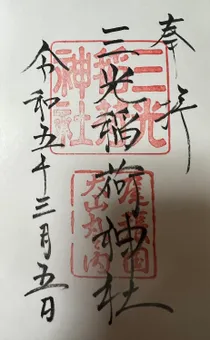 奉拝
三光稲荷神社
令和五年三月五日
三光
稲荷
神社
尾張國
犬山丸の内